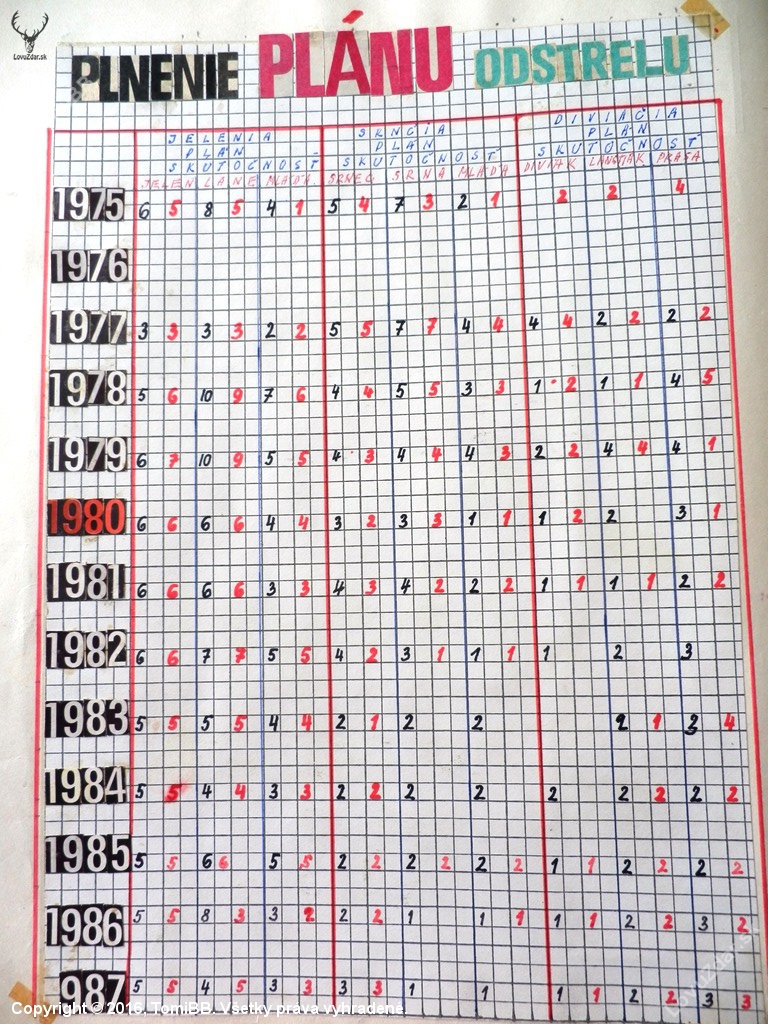 LovuZdar.sk
PLNENIE PLÁNU ODSTRELU
JELENIA SRNČIA DIVIAČIA
PLÁN PLÁN PLÁN
SKUTOČNOSŤ SKUTOČNOSŤ SKUTOČNOSŤ
JELEN LANE MLAĎA SRNEC SRNA MLAĎA DIVIAK LANŠTIAK PRASA
1975 6 5 8 5 4 1 5 4 7 3 2 1 2 2 4
1976
1977 3 3 3 3 2 2 5 5 7 7 4 4 4 4 2 2 2 2
1978 5 6 10 9 7 6 4 4 5 5 3 3 1 2 1 1 4 5
1979 6 7 10 9 5 5 4 3 4 4 4 3 2 2 4 4 4 1
1980 6 6 6 6 4 4 3 2 3 3 1 1 1 2 2 3 1
1981 6 6 6 6 3 3 4 3 4 2 2 2 1 1 1 1 2 2
1982 6 6 7 7 5 5 4 2 3 1 1 1 1 2 3
1983 5 5 5 5 4 4 2 1 2 2 2 1 3 4
1984 5 5 4 4 3 3 2 2 2 2 2 2 2 2 2
1985 5 5 6 6 5 5 2 2 2 2 2 2 1 1 2 2 2 2
1986 5 5 8 3 3 2 2 2 1 1 1 1 1 2 2 3 2
987 5 5 4 5 3 3 3 3 1 1 1 1 2 2 3 3
Copyright © 2016, TomiBB. Všetky práva vyhradené.
LovuZdar.sk